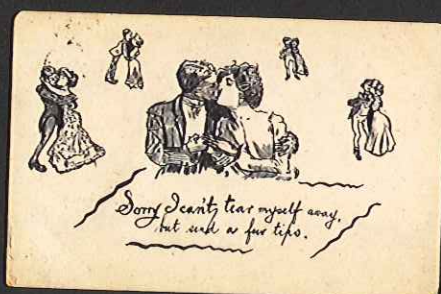 Sorry I can't tear myself away,
but send a few tips.